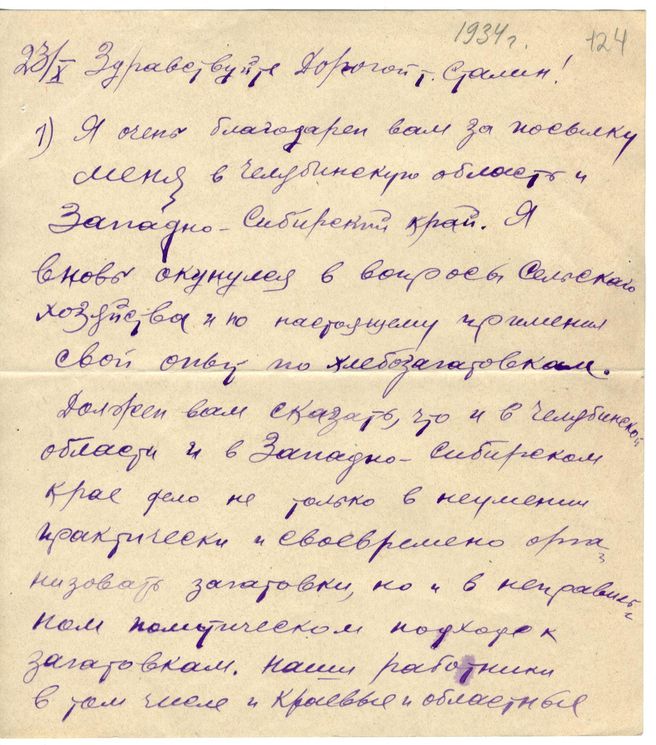 1934 г. 124
23/X Здравствуйте Дорогой т. Сталин!
1) Я очень благодарен вам за посылку
меня в Челябинскую область и
Западно-Сибирский край. Я
вновь окунулся в вопросы Сельского
хозяйства и по настоящему применил
свой опыт по хлебозаготовкам.
Должен вам сказать, что и в Челябинской
области и в Западно-Сибирском
крае дело не только в неумении
практически и своевремено орга
низовать заготовки, но и в неправиль-
ном политическом подходе к
заготовкам. Наши работники
в том числе и Краевые и областные